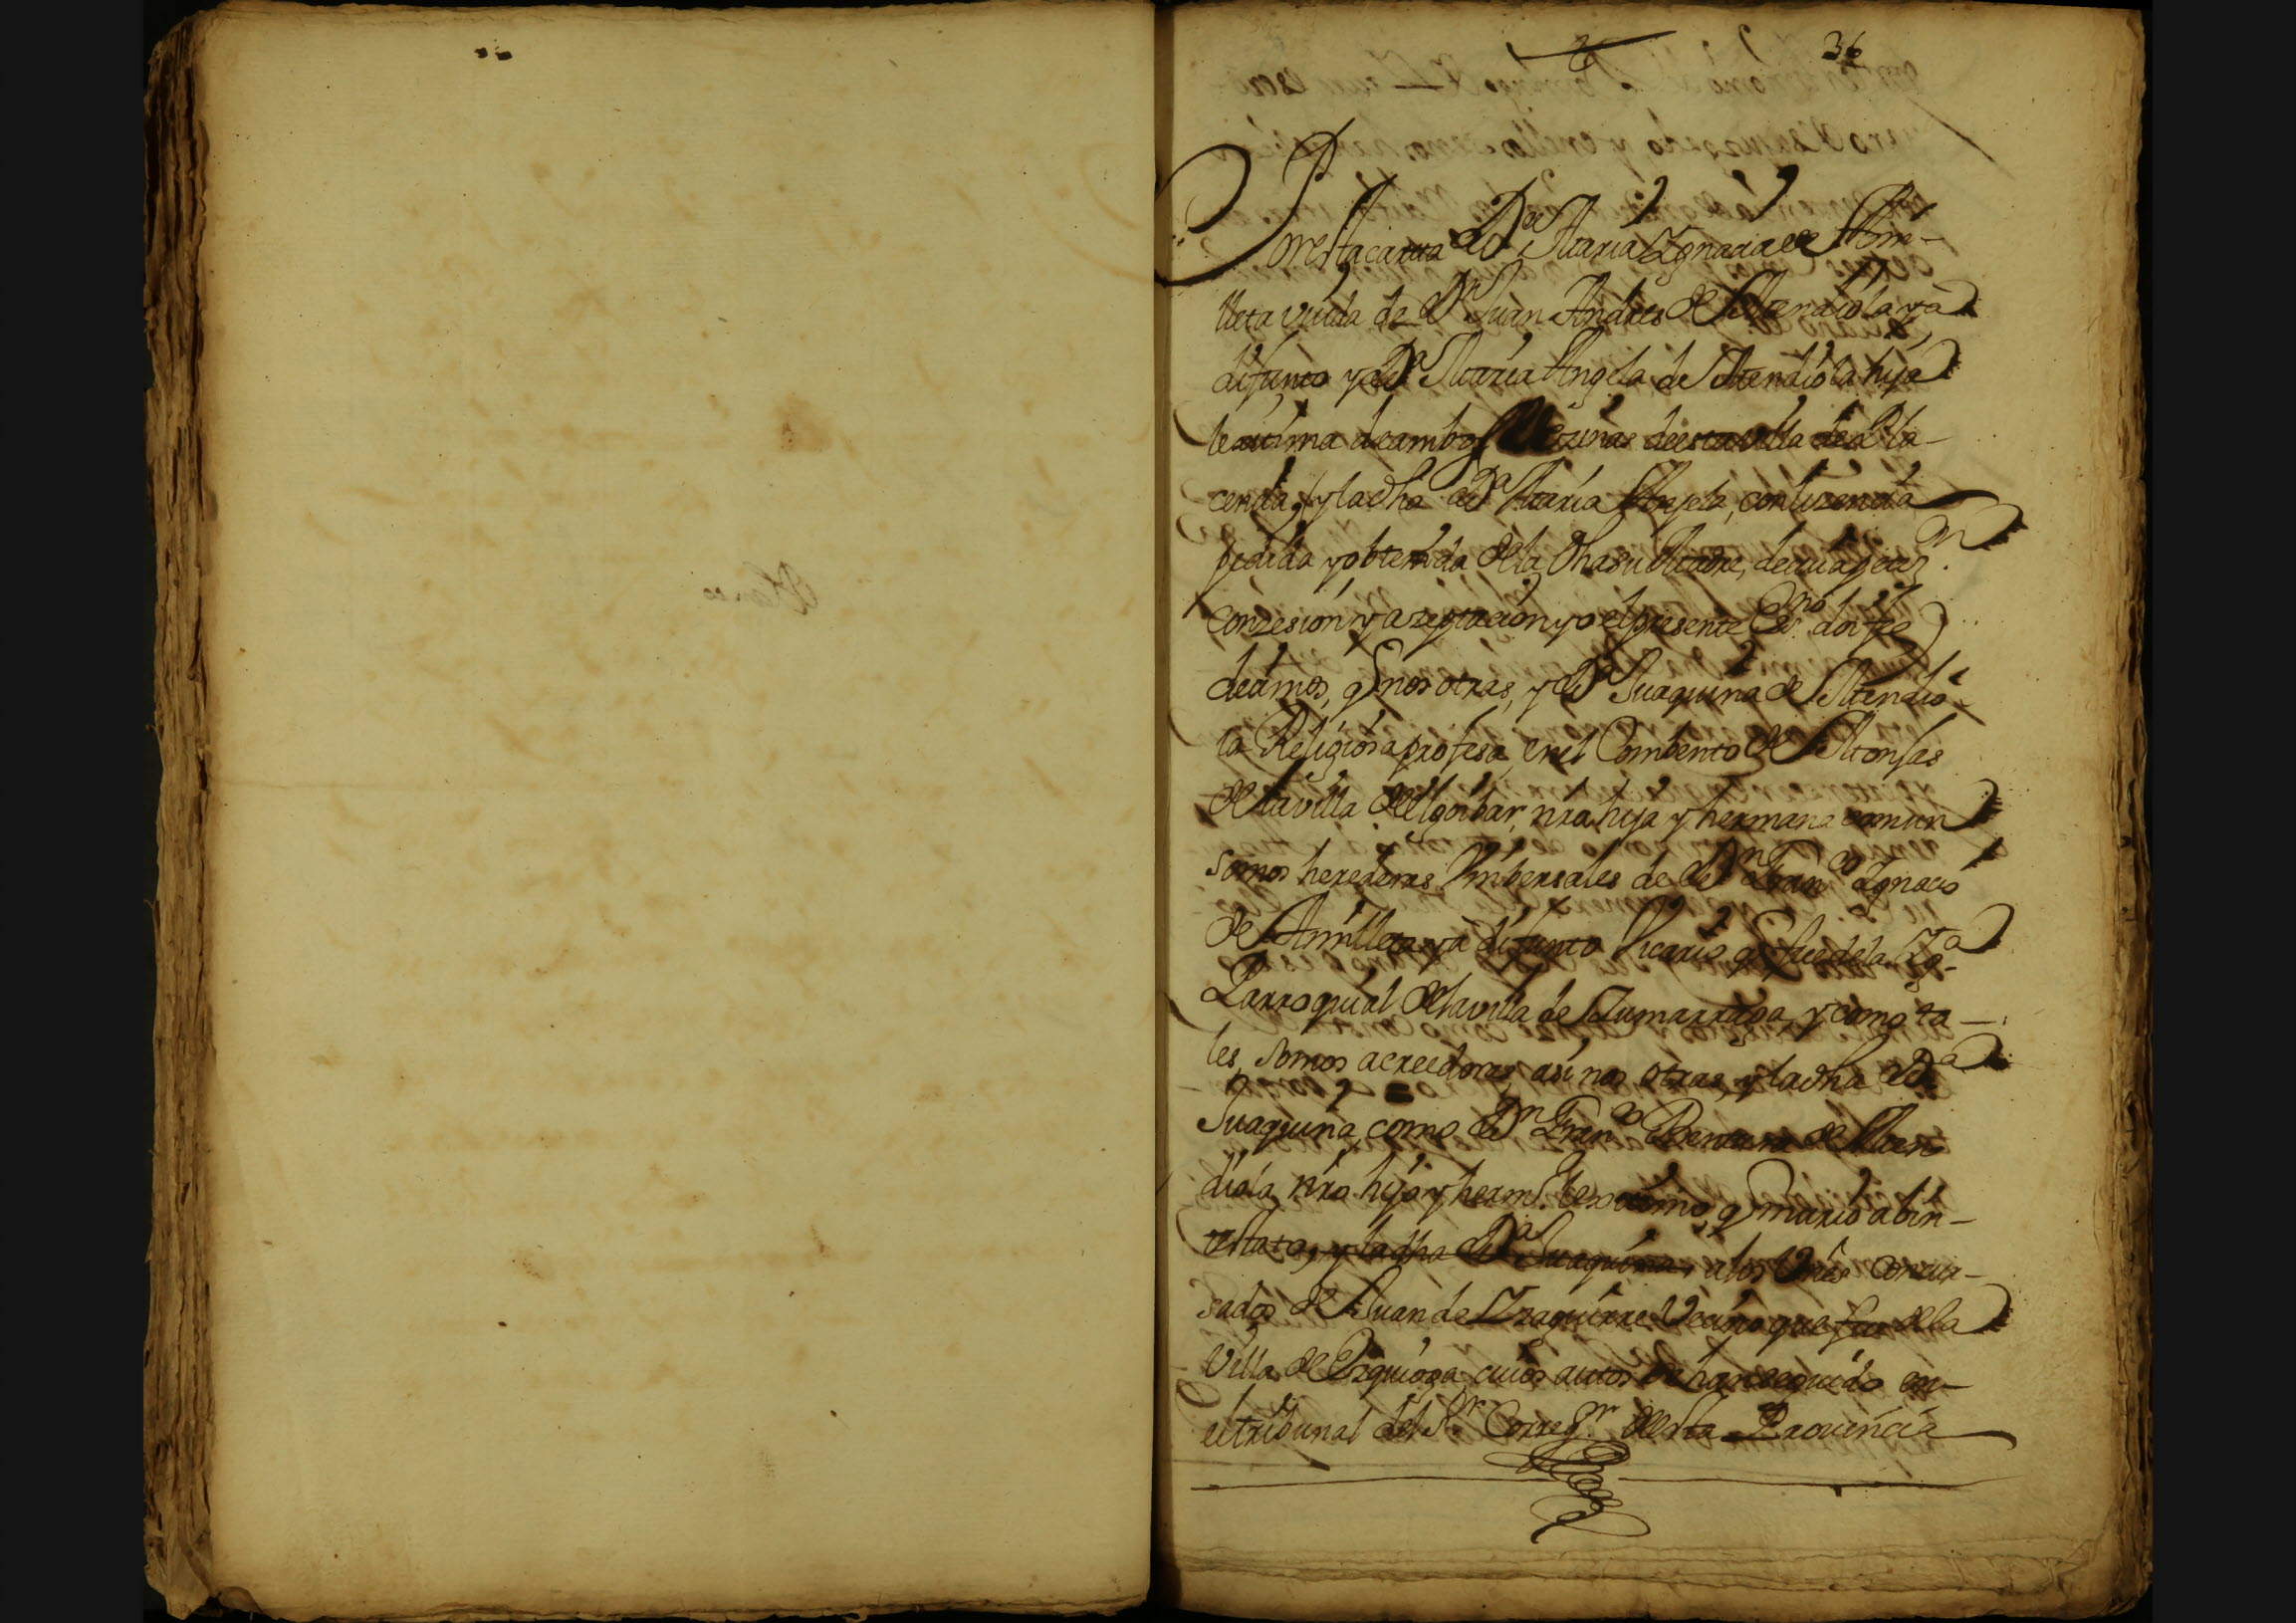 36
Por esta carta Dª Maria Ignacia de Armi-
lleta viuda de Dn Juan Andres de Mendiola ya
difunto y Dª Maria Angela de Mendiola hija
lexitima de ambos Vezinas de esta villa de Pla-
cencia, y la dha Dª Maria Angela, con lizencia
pedida y obtenida de la dha su Madre, de cuia petn.
conzesion y azeptacion yo el presente Esno. doi fee
dezimos, q nosotras, y Dª Juaquina de Mendio-
la Religiosa profesa, en el Combento de Monjas
de la villa de Elgoibar, nra hija y hermana comun
somos herederas Vnibersales de Dn Franco Ignacio
de Armilleta ya difunto Vicario q fue de la Yga.
Parroquial de la villa de Zumarraga, y como ta-
les, somos acreedoras, asi nos otras, y la dha Dª
Juaquina, como Dn Franco Bentura de Men
diola, nro hijo y herm. lexitimo, q murio abin-
testato, y la dha Dª Juaquina, a los Vnes concur-
sados de Juan de Yzaguirre Vecino que fue de la
Villa de Ezquioga, cuios autos se han seguido en-
el tribunal del Sr. Corregr. de esta Provincia